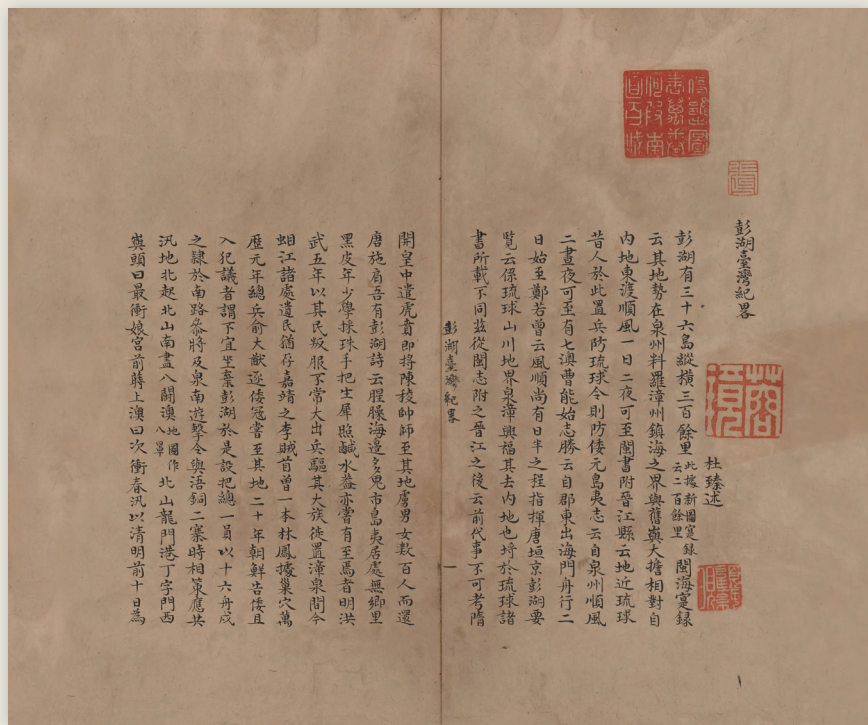 彭湖臺灣紀畧
杜臻述
彭湖有三十六島縱橫三百餘里 此據新圖寔錄云二百餘里 閩海寔錄
云其地勢在泉州料羅漳州鎮海之界與舊嶼大擔相對自
內地東渡順風一日二夜可至閩書附晉江縣云地近琉球
昔人於此置兵防琉球今則防倭元島夷志云自泉州順風
二晝夜可至有七澳曹能始志勝云自郡東出海門舟行二
日始至鄭若曾云風順尚有日半之程指揮唐垣京彭湖要
覽云保琉球山川地界泉漳興福其去內地也埒於琉球諸
書所載不同茲從閩志附之晉江之後云前代事不可考隋
彭湖臺灣紀畧
一
開皇中遣虎賁即將陳稜帥師至其地虜男女數百人而還
唐施肩吾有彭湖詩云腥臊海邊多鬼市島夷居處無鄉里
黑皮年少學採珠手把生犀照鹹水蓋亦嘗有至焉者明洪
武五年以其民叛服不常大出兵驅其大族徙置漳泉間今
蚶江諸處遺民猶存嘉靖之季賊首曾一本林鳳據巢穴萬
歷元年總兵俞大猷逐倭冠嘗至其地二十年朝鮮告倭且
入犯議者謂不宜坐棄彭湖於是設把總一員以十六舟戍
之隸於南路叅將及泉南遊擊令與浯銅二寨時相策應其
汛地北起北山南盡八閗澳 地圖作八罩 北山龍門港丁字門西
嶼頭曰最衝娘宮前蒔上澳曰次衝春汛以清明前十日為